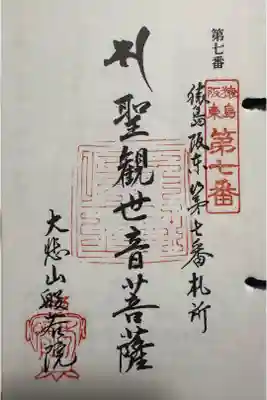 第七番
猿島阪東
第七番
猿島阪東第七番札所
聖観世音菩薩
大悲山般若院